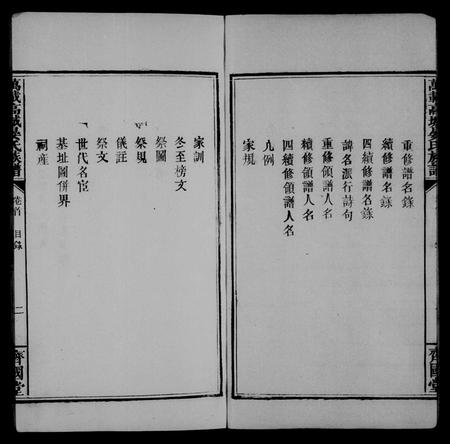 重修譜名錄
續修譜名錄
四續修譜名錄
諱名派行詩句
重修領譜人名
續修領譜人名
四續修領譜人名
凡例
家規
家訓
冬至榜文
祭圖
祭規
儀註
祭文
世代名宦
基址圖併界
祠產
萬載高城
氏族譜
卷首
目錄
二
齊國堂
萬載高城
氏族譜
齊國堂